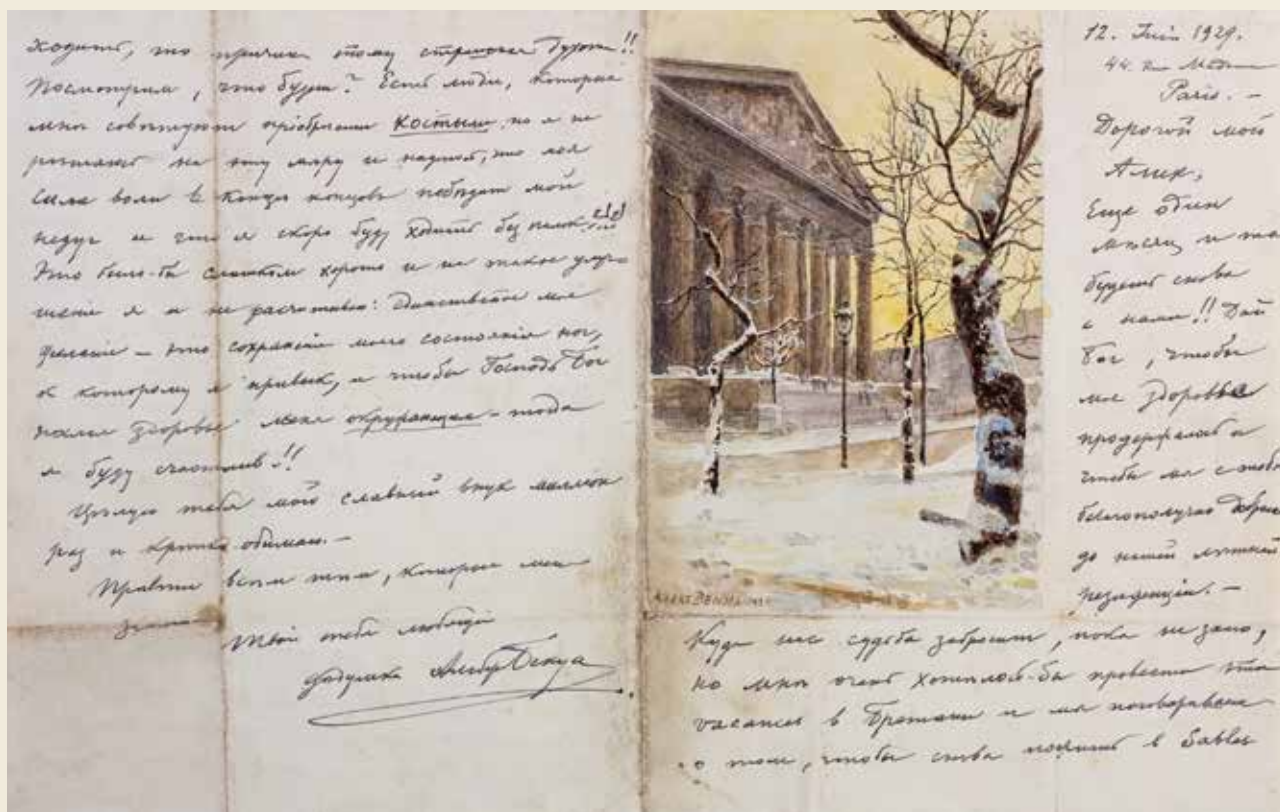 ходитъ, что причина этому страшная буря!!
Посмотрим, что будет? Есть люди, которые
мнѣ совѣтуют пріобрѣсти костыли, но я не
на эту мѣру и надѣюсь, что моя
сила воли в концѣ концовъ побѣдит мой
недуг и что я скоро буду ходить без палок!!!
Это было-бы слишком хорошо и на такое улуч-
шеніе я и не расчитываю: Единственное мое
желаніе – это сохраненіе моего состоянія ног,
к которому я привык, и чтобы Господь Бог
здоровье меня окружающих – тогда
я буду счастлив!!
Цѣлую тебя мой славный внук милліон
раз и крѣпко обнимаю. –
Привѣты всѣм тѣм, которые меня
Твой тебя любящій
дѣдушка Альбер Бенуа
АЛЬБЕР БЕНУА
12. Juin 1929.
44. Rue
Paris. –
Дорогой мой
Алик,
Еще один
мѣсяц и ты
будешь снова
с нами!! Дай
Бог, чтобы
мое здоровье
продержалось и
чтобы мы с тобой
благополучно
до нашей лѣтней
резиденціи. –
Куда нас судьба забросит, пока не знаю,
но мнѣ очень хотѣлось-бы провести эти
vacances в Бретани и мы поговариваем
о том, чтобы снова поѣхать в Sables